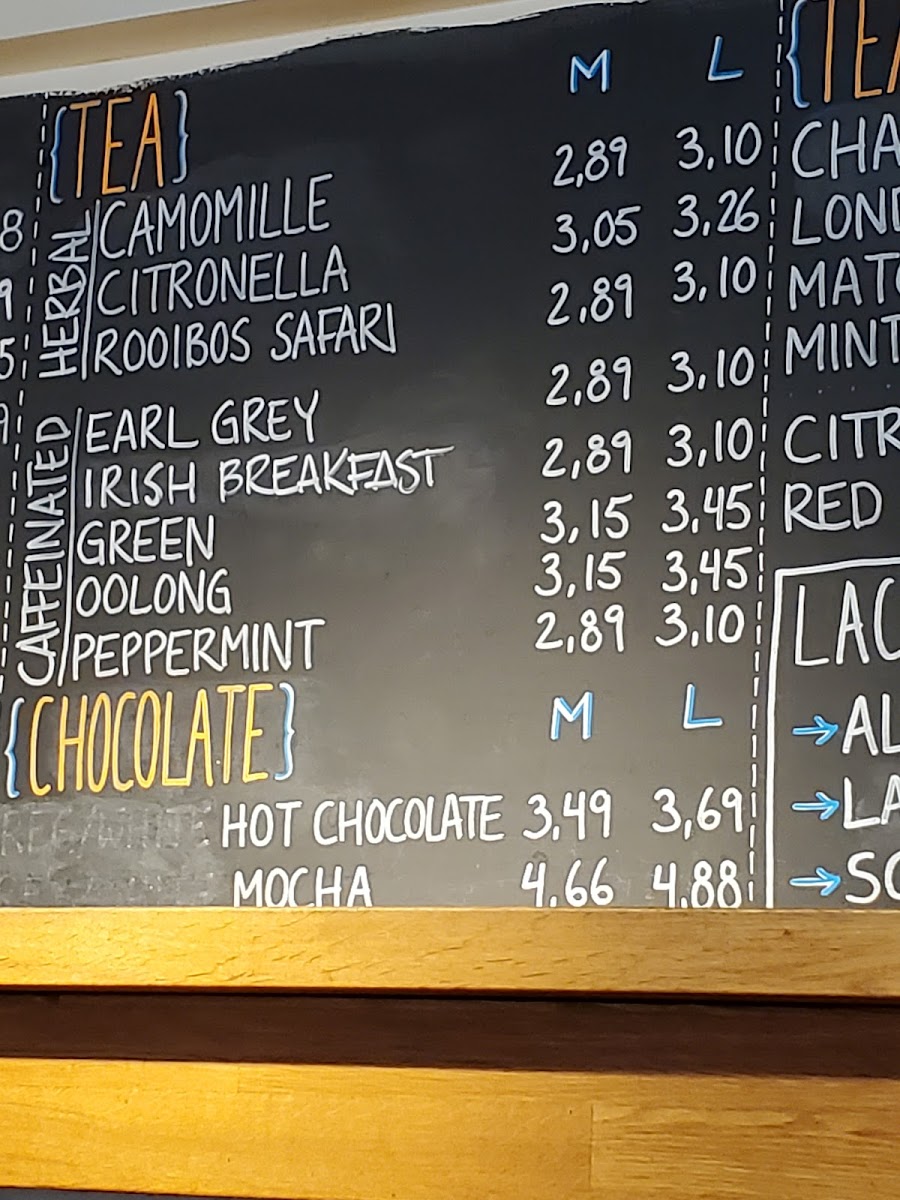 {TEA} M L
HERBAL
CAMOMILLE 2,89 3,10
CITRONELLA 3,05 3,26
ROOIBOS SAFARI 2,89 3,10
CAFFEINATED
EARL GREY 2,89 3,10
IRISH BREAKFAST 2,89 3,10
GREEN 3,15 3,45
OOLONG 3,15 3,45
PEPPERMINT 2,89 3,10
{CHOCOLATE} M L
HOT CHOCOLATE 3,49 3,69
MOCHA 4,66 4,88
{TEA
CHA
LOND
MATC
MINT
CITR
RED
LAC
→AL
→LA
→SO